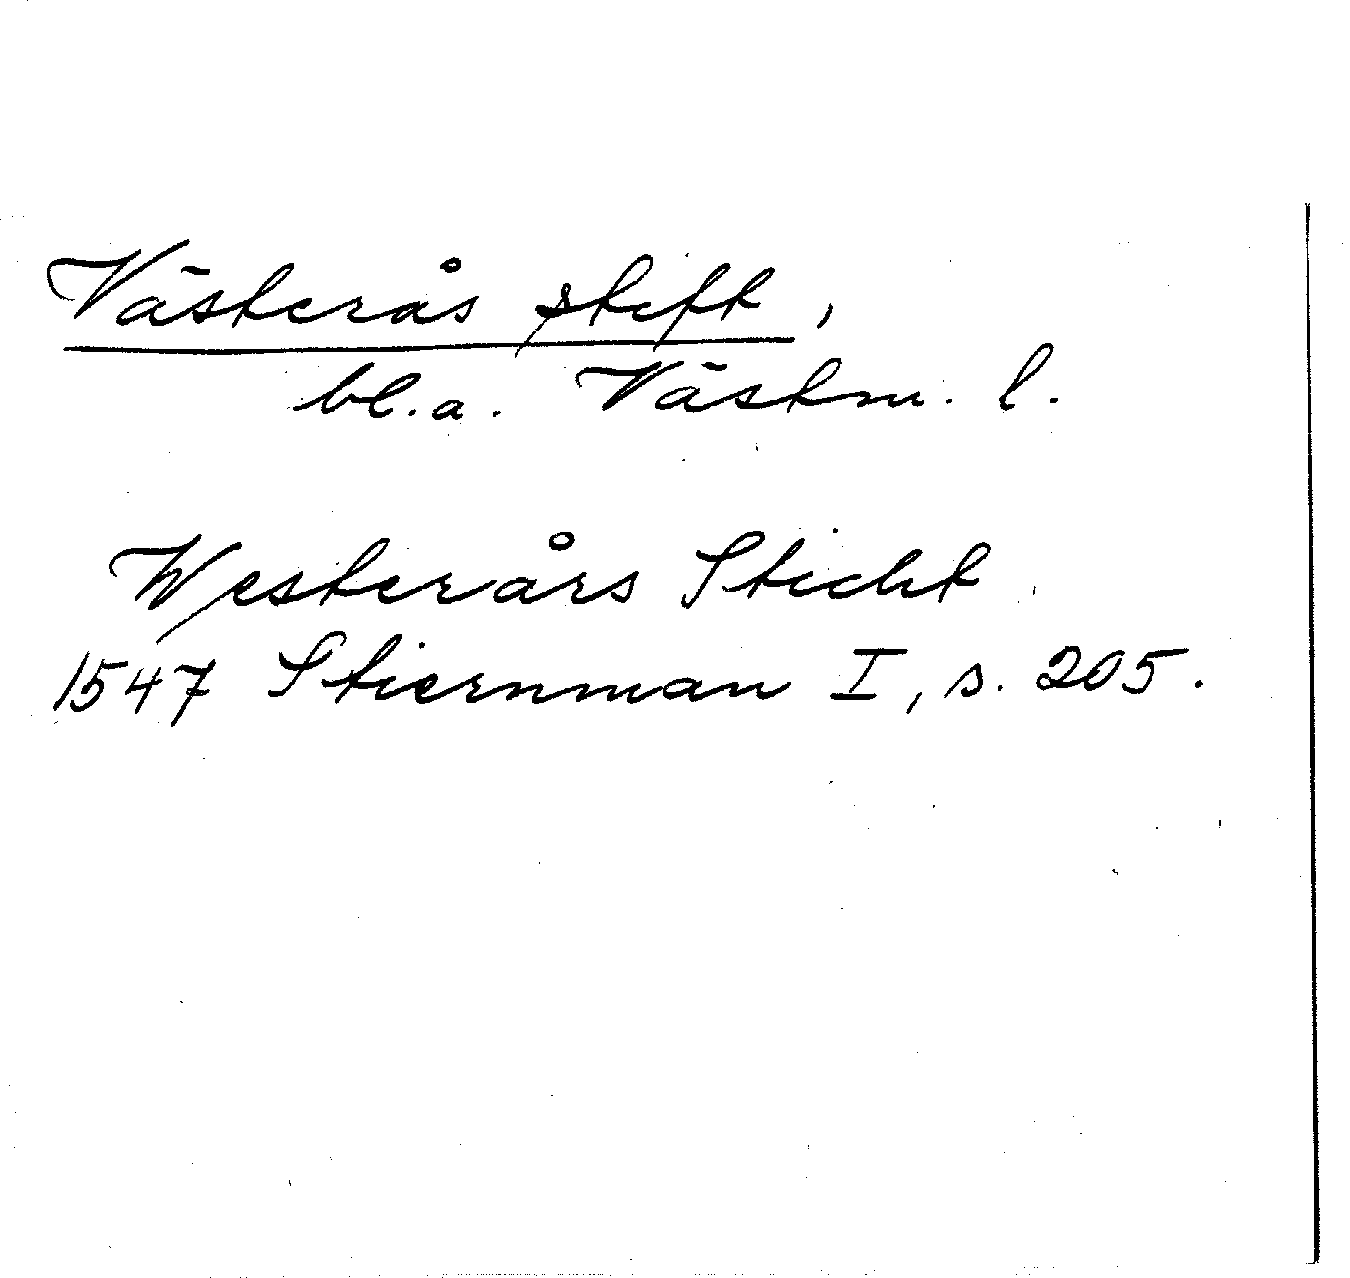 Västerås stift,
bl.a. Västm. l.
Westerårs Sticht
1547 Stiernman I, s. 205.